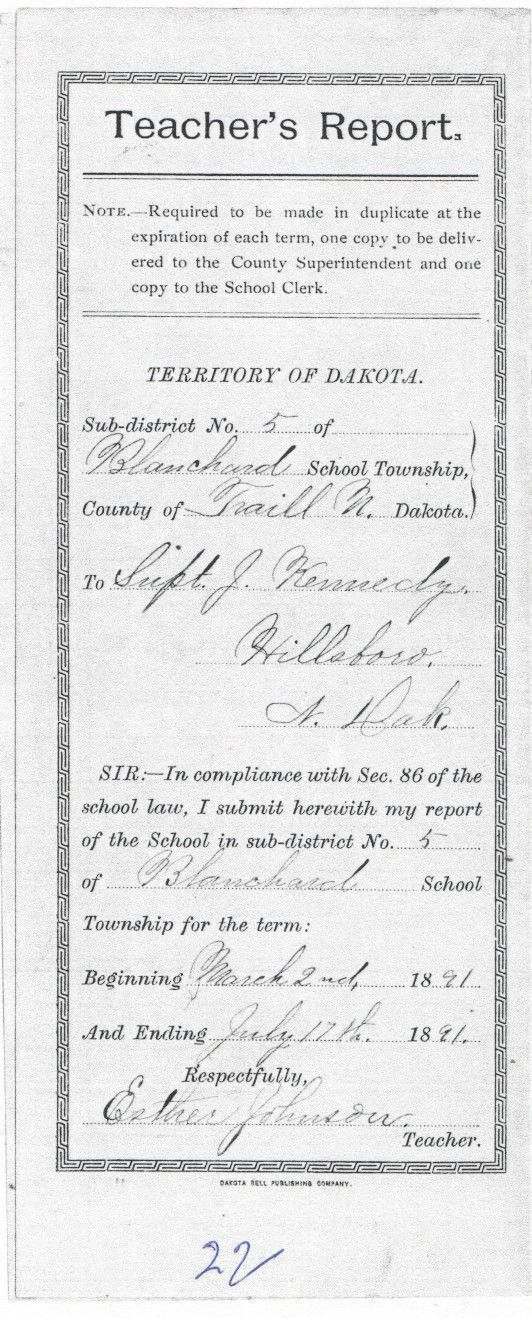 Teacher's Report.
NOTE.—Required to be made in duplicate at the
expiration of each term, one copy to be deliv-
ered to the County Superintendent and one
copy to the School Clerk.
TERRITORY OF DAKOTA.
Sub-district No. 5 of
Blanchard School Township,
County of Traill N. Dakota.
To Supt. J. Kennedy.
Hillsboro.
N. Dak.
SIR:—In compliance with Sec. 86 of the
school law, I submit herewith my report
of the School in sub-district No. 5
of Blanchard School
Township for the term:
Beginning March 2nd, 1891
And Ending July 17th. 1891.
Respectfully,
Esther Johnson.
Teacher.
DAKOTA BELL PUBLISHING COMPANY.
22